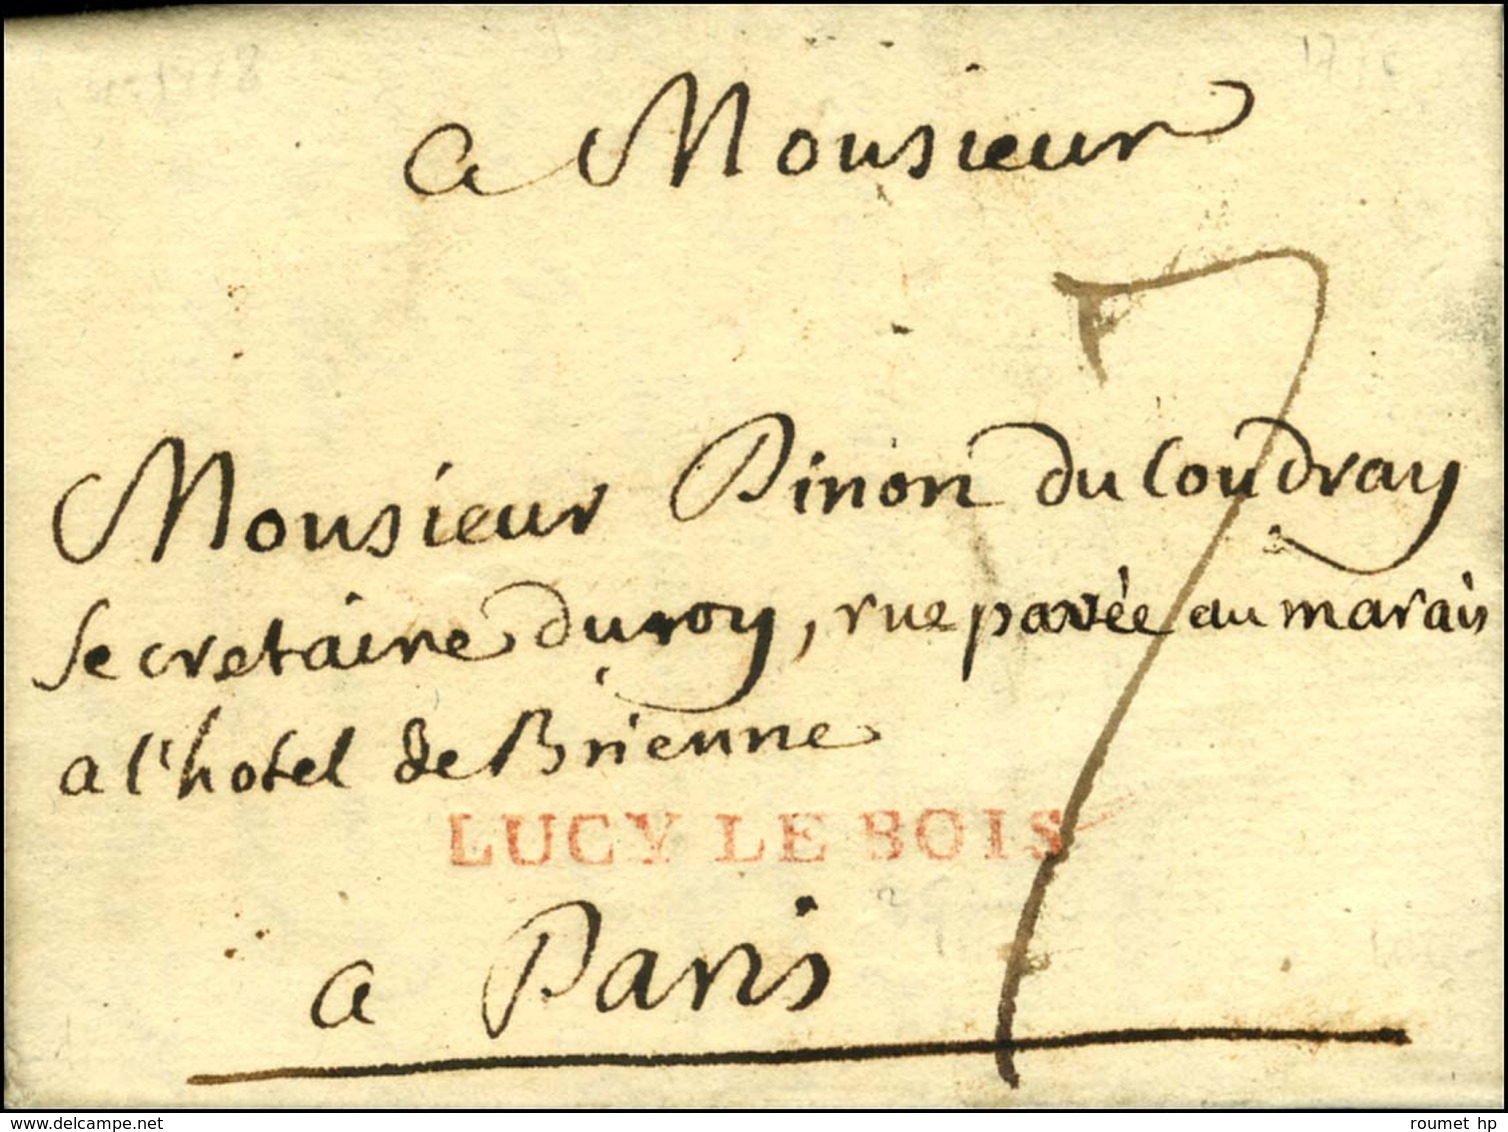 a Monsieur
7
Monsieur Pinon du Coudray
secretaire du roy, rue pavée au marais
a l'hotel de Brienne
LUCY LE BOIS
a Paris
www.delcampe.net
roumet hp